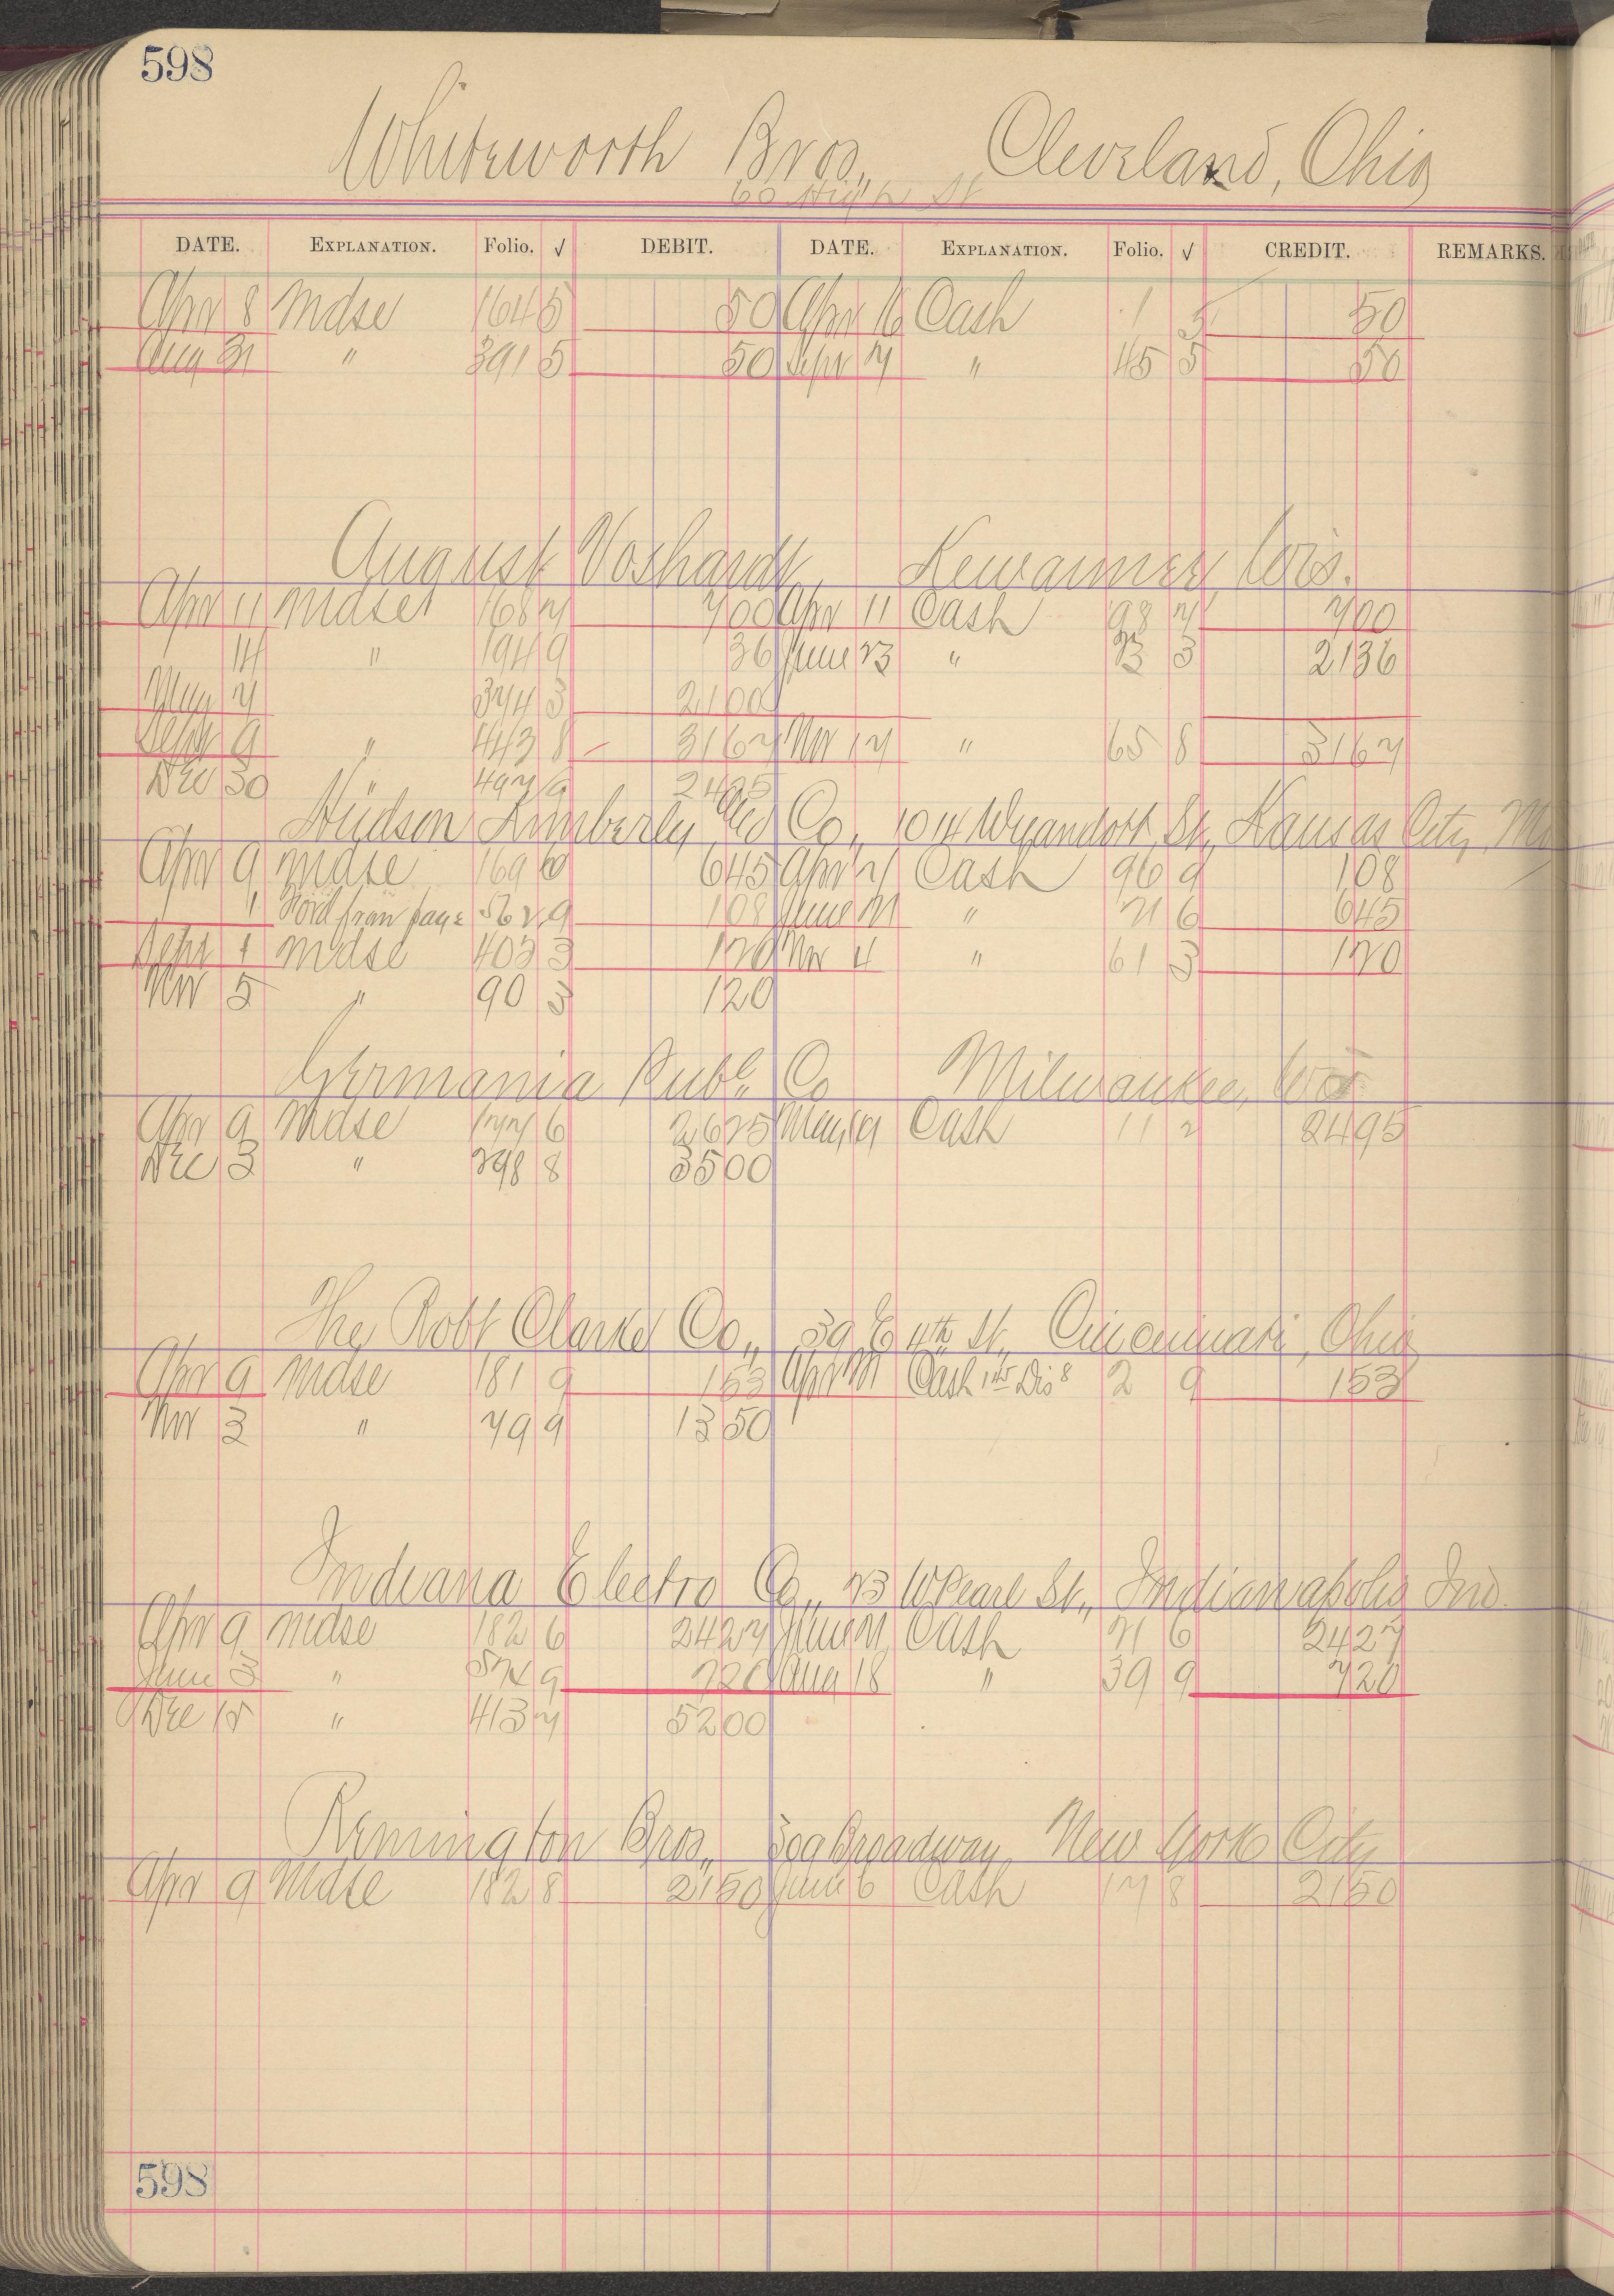 598
Whiteworth Bros., Cleveland, Ohio
60 High St
DATE. EXPLANATION. Folio. √ DEBIT. DATE. EXPLANATION. Folio. √ CREDIT. REMARKS.
Apr 8 Mdse 164 5 50 Apr 16 Cash 1 5 50
Aug 31 " 391 5 50 Sept 7 " 45 5 50
August Voshardt, Kewaunee, Wis.
Apr 11 Mdse 168 7 700 Apr 11 Cash 98 7 700
14 " 194 9 36 June 23 " 23 3 2136
May 7 374 3 2100
Sept 9 " 443 8 3167 Nov 17 " 65 8 3167
Dec 30 " 497 9 2425
Hudson Kimberly Co., 1014 Wyandott St., Kansas City, Mo
Apr 9 Mdse 169 6 645 Apr 7 Cash 96 9 108
1 from page 562 9 108 June 21 " 21 6 645
Sept 1 Mdse 403 3 120 Nov 4 " 61 3 120
Nov 5 " 90 3 120
Germania Publ. Co Milwaukee, Wis
Apr 9 Mdse 177 6 2625 May 19 Cash 11 2 2495
Dec 3 " 298 8 3500
The Robt Clarke Co., 39 E 4th St., Cincinnati, Ohio
Apr 9 Mdse 181 9 153 Apr 21 Cash Dis 2 9 153
Nov 3 " 79 9 1350
Indiana Electro Co., 23 W Pearl St., Indianapolis Ind.
Apr 9 Mdse 182 6 2427 June 21 Cash 21 6 2427
June 3 " 9 720 Aug 18 " 39 9 720
Dec 12 " 413 7 5200
Remington Bros., 309 Broadway, New York City
Apr 9 Mdse 182 8 2150 June 6 Cash 17 8 2150
598